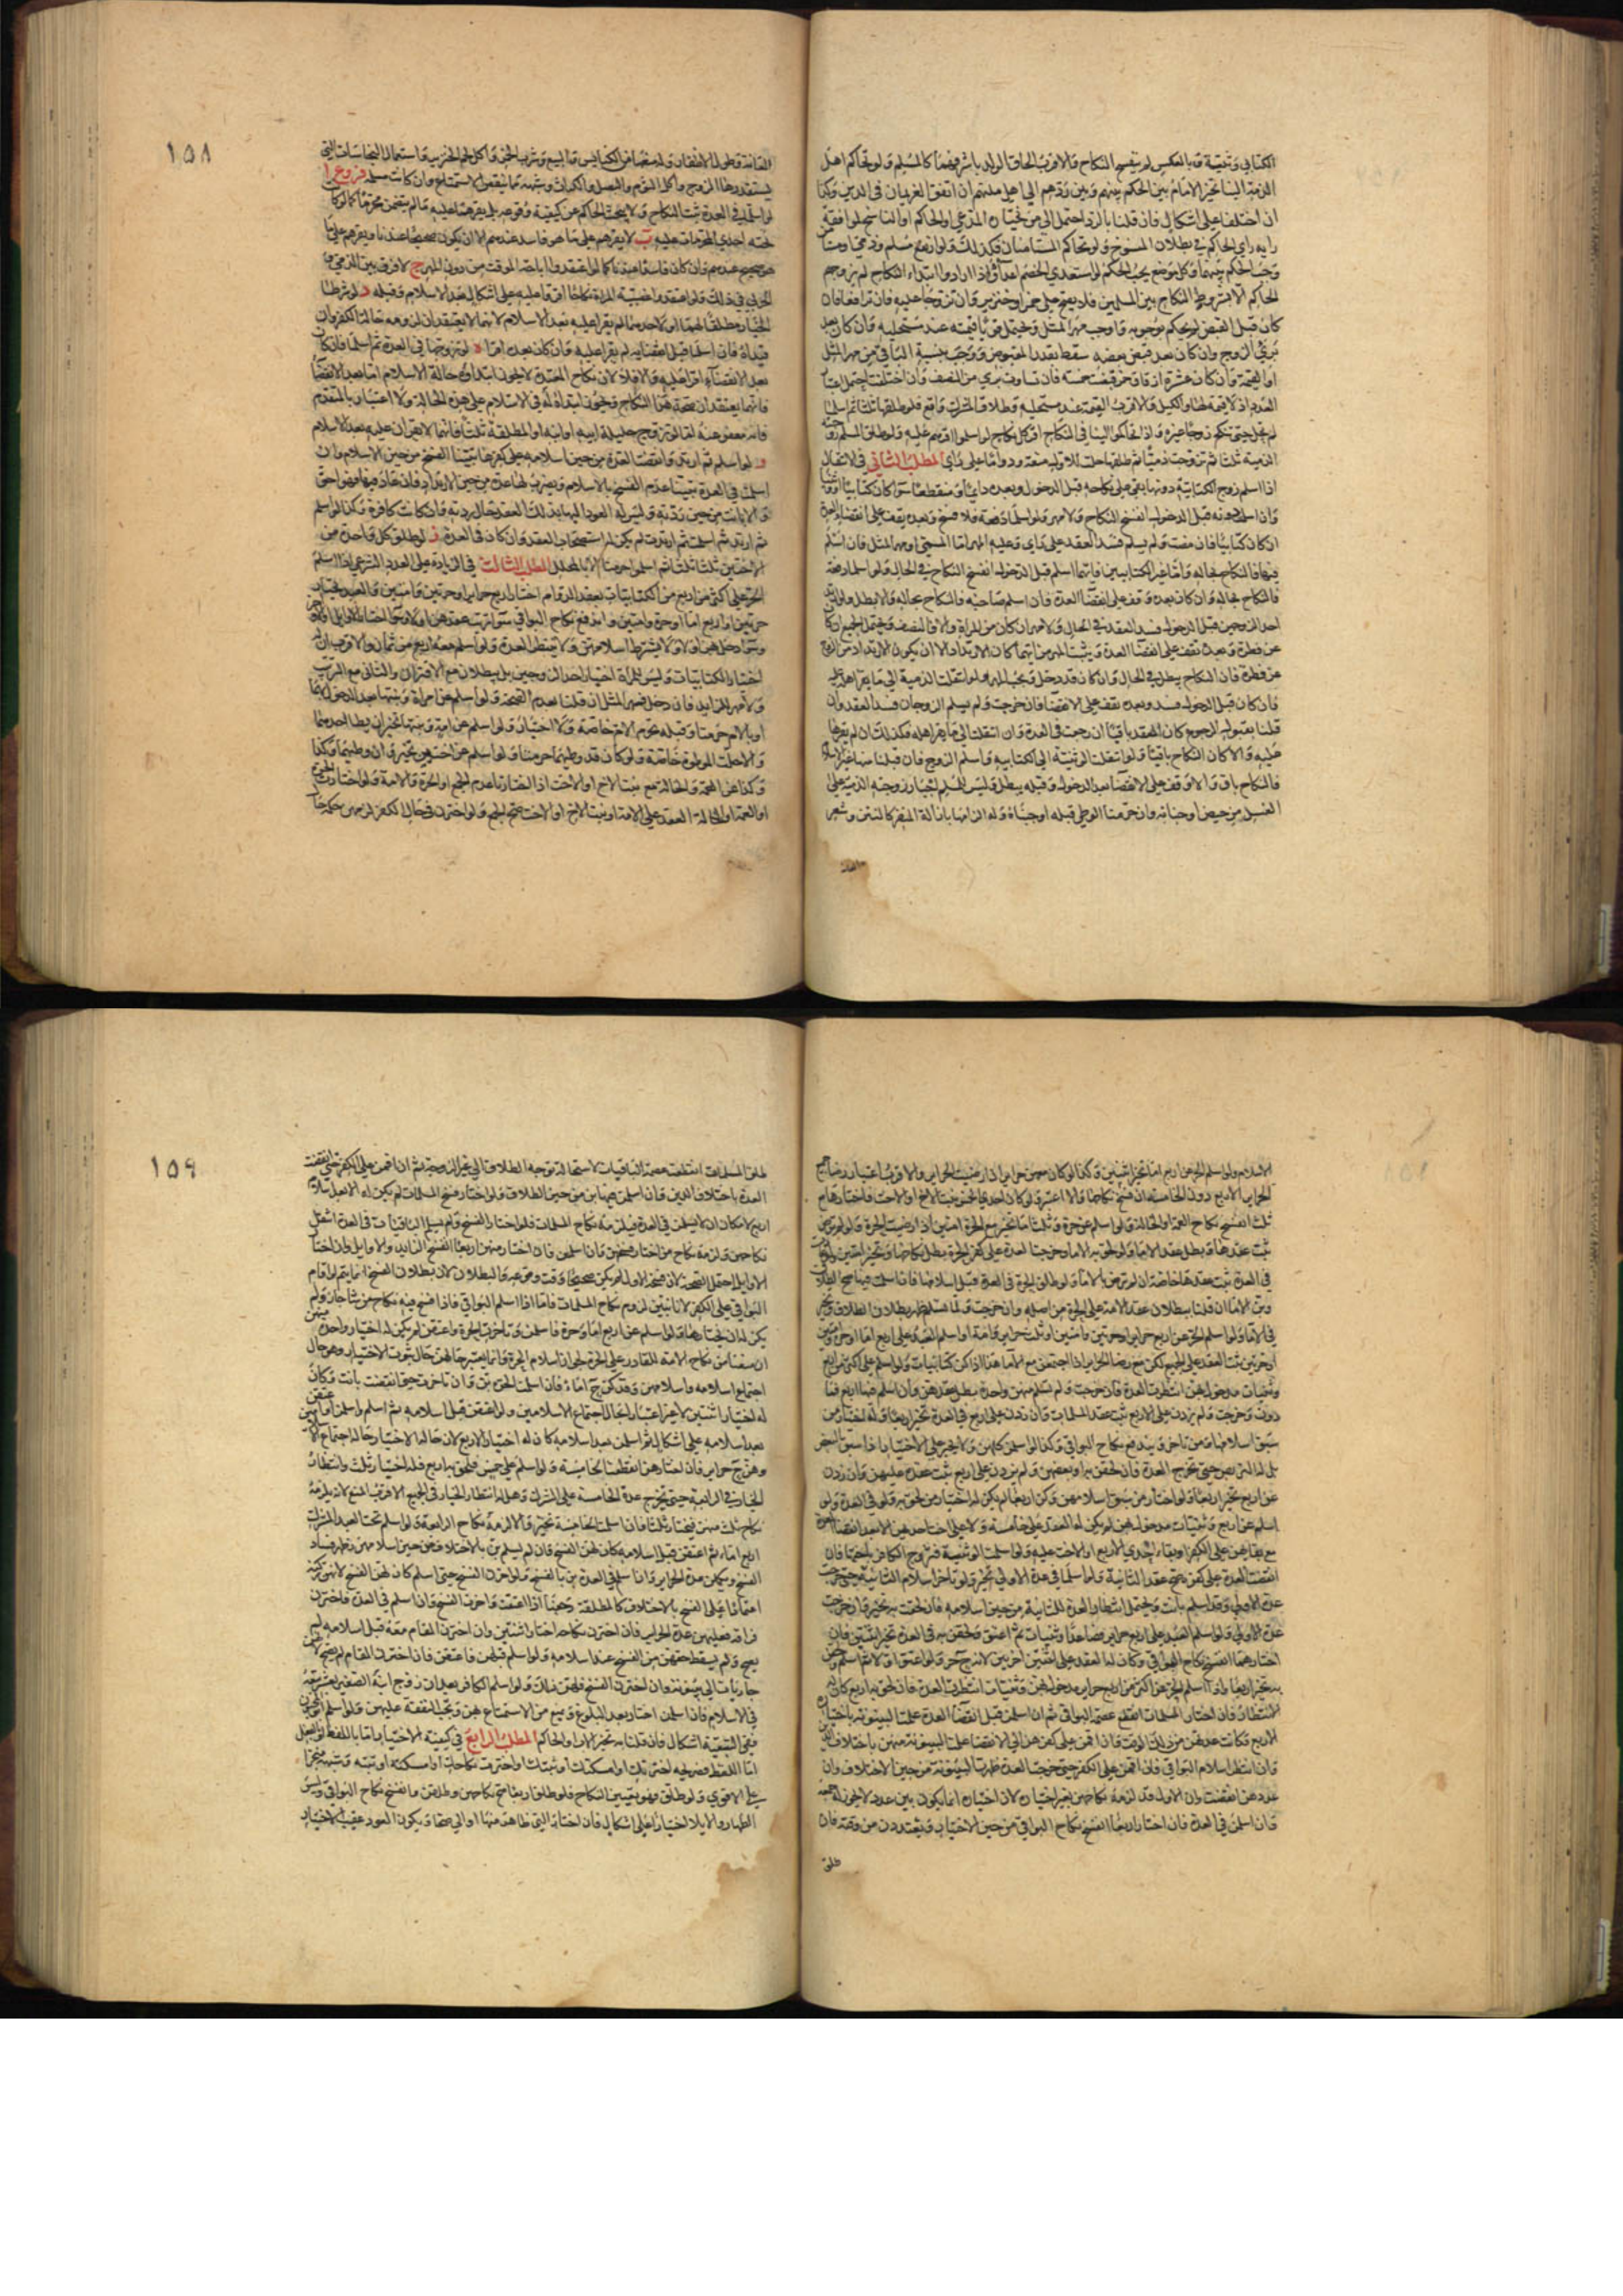 الكتابي وثنية وبالعكس لم ينفسخ النكاح والاقرب الحاق الولد باشرفهما كالمسلم ولو تحاكم اهل
الذمة الينا تخير الامام بين الحكم بينهم وبين ردهم الي اهل ملتهم ان اتفق الغريمان في الدين وكذا
ان اختلفا علي اشكال فان قلنا بالرد احتمل الي من يختاره المدعي او الحاكم او الناسخ لو
رايه راي الحاكم في بطلان المنسوخ ولو تحاكم المستامنان فكذلك ولو ارتفع مسلم وذمي او مستامن
وجب الحكم بينهما وكل موضع يجب الحكم لو استعدي الخصم اعداه واذا ارادوا ابتداء النكاح لم يزوجهم
الحاكم الا بشروط النكاح بين المسلمين فلا يصح علي خمر او خنزير وان تزوجا عليه فان ترافعا فان
كان قبل القبض لم يحكم بوجوبه واوجب مهر المثل ويحتمل قويا قيمته عند مستحليه وان كان بعده
برئ الزوج وان كان بعد قبض بعضه سقط بقدر المقبوض ووجب بنسبة الباقي من مهر المثل
او القيمة وان كان عشرة ازقاق خمر قبضت خمسة فان تساوت بري من النصف وان اختلفت احتمل اعتبار
العدد اذ لا قيمة لها والكيل والاقرب القيمة عند مستحليه وطلاق المشرك واقع فلو طلقها ثلثا ثم اسلما
لم تحل حتي تنكح زوجا غيره واذا تحاكموا الينا في النكاح اقر كل نكاح لو اسلموا اقرهم عليه ولو طلق المسلم زوجته
الذمية ثلثا ثم تزوجت ذميا ثم طلقها حلت للاول متعة ودواما علي راي المطلب الثاني في الانتقال
اذا اسلم زوج الكتابية دونها بقي علي نكاحه قبل الدخول وبعده دايما ومنقطعا سوا كان كتابيا او وثنيا
وان اسلمت دونه قبل الدخول انفسخ النكاح ولا مهر ولو اسلما دفعة فلا فسخ وبعده يقف علي انقضا العدة
ان كان كتابيا فان مضت ولم يسلم فسد العقد علي راي وعليه المهر اما المسمي او مهر المثل فان اسلم
فيها فالنكاح بحاله واما غير الكتابيين فايهما اسلم قبل الدخول انفسخ النكاح في الحال ولو اسلما دفعة
فالنكاح بحاله وان كان بعده وقف علي انقضا العدة فان اسلم صاحبه فالنكاح بحاله والا بطل ولو ارتد
احد الزوجين قبل الدخول فسد العقد في الحال ولا مهر ان كان من المراة والا فالنصف ويحتمل الجميع ان كان
عن فطرة وبعده يقف علي انقضا العدة ويثبت المهر من ايهما كان الارتداد الا ان يكون الارتداد من الزوج
عن فطرة فان النكاح يبطل في الحال وان كان قد دخل وجب المهر ولو انتقلت الذمية الي ما يقر اهله عليه
فان كان قبل الدخول فسد وبعده يقف علي الانقضا فان خرجت ولم يسلم الزوجان فسد العقد وان
قلنا بقبوله الرجوع كان العقد باقيا ان رجعت في العدة وان انتقلت الي ما يقر اهله فكذلك ان لم يقرها
عليه والا كان النكاح باقيا ولو انتقلت الوثنية الي الكتابية واسلم الزوج فان قبلنا منها غير الاسلام
فالنكاح باق والا وقف علي الانقضا بعد الدخول وقبله يبطل وليس للمسلم اجبار زوجته الذمية علي
الغسل من حيض او جنابة وان حرمنا الوطي قبله اوجبناه وله الزامها بازالة المنفر كالنتن وشعر
العانة
١٥٨
العانة وطول الاظفار وله منعها من الكنايس والبيع وشرب الخمر واكل لحم الخنزير واستعمال النجاسات التي
يستقذرها الزوج واكل الثوم والبصل والكراث وشبهه مما ينقص الاستمتاع وان كانت مسلمة فروع ا
لو اسلما في العدة ثبت النكاح ولا يبحث الحاكم عن كيفية وقوعه بل يقرهما عليه ما لم يتضمن محرما كما لو كان
تحته احدي المحرمات عليه ب لا يقرهم علي ما هو فاسد عندهم الا ان يكون صحيحا عندنا ويقرهم علي ما
هو صحيح عندهم وان كان فاسدا عندنا كما لو اعتقدوا اباحة الموقت من دون المهر ج لا فرق بين الذمي و
الحربي في ذلك ولو اعتقدوا غصبية المراة نكاحا اقرا عليه علي اشكال بعد الاسلام وقبله د لو شرطنا
الخيار مطلقا لهما او لاحدهما لم يقرا عليه بعد الاسلام لانهما لا يعتقدان لزومه حالة الكفر وان
قيداه فان اسلما قبل انقضايه لم يقرا عليه وان كان بعده اقرا ه لو تزوجها في العدة ثم اسلما فان كان
بعد الانقضآء اقرا عليه والا فلا لان نكاح المعتدة لا يجوز ابتداؤه حالة الاسلام اما بعد الانقضآ
فانهما يعتقدان صحة هذا النكاح ويجوز ابتداؤه في الاسلام علي هذه الحالة ولا اعتبار بالمتقدم
فانه معفو عنه اما لو تزوج حليلة ابيه او ابنه او المطلقة ثلثا فانهما لا يقران عليه بعد الاسلام
و لو اسلم ثم ارتد وانقضت العدة من حين اسلامه علي كفرها تبينا الفسخ من حين الاسلام وان
اسلمت في العدة تبينا عدم الفسخ بالاسلام ويضرب لها عدة من حين الارتداد فان عاد فيها فهو احق
والا بانت من حين ردته وليس له العود اليها بذلك العقد حال ردته وان كانت كافرة وكذا لو اسلم
ثم ارتد ثم اسلمت ثم ارتدت لم يكن له استصحاب العقد وان كان في العدة ز لو طلق كل واحدة من
الاختين ثلثا ثلثا ثم اسلموا حرمتا الا بالمحلل المطلب الثالث في الزيادة علي العدد الشرعي اذا اسلم
الحر علي اكثر من اربع من الكتابيات بعقد الدوام اختار اربع حراير او حرتين وامتين والعبد يختار
حرتين او اربع اماء او حرة وامتين واندفع نكاح البواقي سوا ترتب عقدهن او لا وسوا اختار الاوايل او الاواخر
وسوا دخل بهن او لا ولا يشترط اسلامهن ولا ينتظر العدة ولو اسلم معه اربع من ثمان فالاقرب ان له
اختيار الكتابيات وليس للمراة اختيار احد الزوجين بل يبطلان مع الاقتران والثاني مع الترتب
ولا مهر للزايد فان دخل فمهر المثل ان قلنا بعدم الصحة ولو اسلم عن امراة وبنتها بعد الدخول بهما
او بالام حرمتا وقبله تحرم الام خاصة ولا اختيار ولو اسلم عن امة وبنتها تخير ان لم يطا احدهما
والا حلت الموطوءة خاصة ولو كان قد وطيهما حرمتا ولو اسلم عن اختين تخير وان وطيهما وكذا
وكذا عن العمة والخالة مع بنت الاخ او الاخت اذا لم تختارا عدم الجمع او الحرة والامة ولو اختارت الحرة
او العمة او الخالة العقد علي الامة او بنت الاخ او الاخت صح الجمع ولو اخترن في حال الكفر لم يعتبر حكم حال
الاسلام ولو اسلم الحر عن اربع اماء تخير اثنتين وكذا لو كان معهن حراير ان رضيت الحراير والاقرب اعتبار رضا جميع
الحراير الاربع دون الخامسة ان فسخ نكاحها والا اعتبر ولو كان لاحدي الخمس بنت الاخ او الاخت فاختارها مع
ثلث انفسخ نكاح العمة او الخالة ولو اسلم عن حرة وثلث اماء تخير مع الحرة امتين اذا رضيت الحرة ولو لم ترض
ثبت عقدها وبطل عقد الاماء ولو لحق به الاماء وخرجت العدة علي كفر الحرة بطل نكاحها وتخير اثنتين ولو لحقت
في العدة ثبت عقدها خاصة ان لم ترض بالاماء ولو طلق الحرة في العدة قبل اسلامها فان اسلمت فيها صح الطلاق
وبن الاماء ان قلنا ببطلان عقد الامة علي الحرة من اصله وان خرجت ولما تسلم ظهر بطلان الطلاق وتخير
في الاماء ولو اسلم الحر عن اربع حراير او حرتين وامتين او ثلث حراير وامة او اسلم العبد علي اربع اماء او حرة وامتين
او حرتين ثبت العقد علي الجميع لكن مع رضا الحراير اذا اجتمعن مع الاماء هذا اذا كن كتابيات ولو اسلم علي اكثر من اربع
وثنيات مدخول بهن انتظرت العدة فان خرجت ولم تسلم منهن واحدة بطل عقدهن وان اسلم منها اربع فما
دون وخرجت ولم يزدن علي الاربع ثبت عقد المسلمات وان زدن علي اربع في العدة تخير اربعا وله اختيار من
سبق اسلامها ومن تاخر ويندفع نكاح البواقي وكذا لو اسلمن كلهن ولا يجبر علي الاختيار اذا سبق البعض
بل له التربص حتي تخرج العدة فان لحقن به او بعضهن ولم يزدن علي اربع ثبت عقده عليهن وان زدن
عن اربع تخير اربعا ولو اختار من سبق اسلامهن وكن اربعا لم يكن له اختيار من لحق به ولو في العدة ولو
اسلم عن اربع وثنيات مدخول بهن لم يكن له العقد علي خامسة ولا علي اخت احديهن الا بعد انقضا العدة
مع بقائهن علي الكفر او بقاء احدي الاربع او الاخت عليه ولو اسلمت الوثنية فتزوج الكافر باختها فان
انقضت العدة علي كفره صح عقد الثانية ولو اسلما في عدة الاولي تخير ولو تاخر اسلام الثانية حتي خرجت
عدة الاولي وقد اسلم بانت ويحتمل انتظار العدة للثانية من حين اسلامه فان لحقت به تخير وان خرجت
عدة الاولي ولو اسلم العبد علي اربع حراير فصاعدا وثنيات ثم اعتق ولحقن به في العدة تخير اثنتين فان
اختارهما انفسخ نكاح البواقي وكان له العقد علي اثنتين اخريين لانه ح حر ولو اعتق اولا ثم اسلم ولحقن
به تخير اربعا ولو اسلم الحر عن اكثر من اربع حراير مدخول بهن وثنيات انتظرت العدة فان لحق به اربع كان له
الانتظار فان اختار المسلمات انقطع عصمة البواقي ثم ان اسلمن قبل انقضآ العدة علمنا البينونة باختياره
الاربع وكانت عدتهن من ذلك الوقت فان اقمن علي كفرهن الي الانقضا علمنا البينونة منهن باختلاف الدين
وان انتظر اسلام البواقي فان اقمن علي الكفر حتي خرجت العدة ظهرت البينونة من حين الاختلاف وان
عددهن انقضت وان الاول قد لزمه نكاحهن بغير اختياره لان اختياره انما يكون بين عدد لا يجوز له جمعه
وان اسلمن في العدة فان اختار اربعا انفسخ نكاح البواقي من حين الاختيار ويعتددن من وقته فان
طلق
١٥٩
طلق المسلمات انقطعت عصمة الباقيات لاستحالة توجه الطلاق الي غير الزوجة ثم ان اقمن علي الكفر حتي انقضت
العدة باختلاف الدين وان اسلمن فيها بن من حين الطلاق ولو اختار فسخ المسلمات لم يكن له الا بعد
اربع لامكان ان لا يسلمن في العدة فيلزمه نكاح المسلمات فلو اختار الفسخ ولم يسلم الباقيات في العدة انفسخ
نكاحهن ولزمه نكاح من اختار فسخهن وان اسلمن فان اختار منهن اربعا انفسخ الزايد والاوايل وان اختار
الاوايل احتمل الصحة لان فسخ الاول لم يكن صحيحا وقت وقوعه والبطلان لان بطلان الفسخ انما يتم لو اقام
البواقي علي الكفر لانا نتبين لزوم نكاح المسلمات فاما اذا اسلم البواقي فاذا فسخ فيه نكاح من شا جاز ولم
يكن له ان يختارها ولو اسلم عن اربع اماء وحرة فاسلمن وتاخرت الحرة واعتقن لم يكن له اختيار واحدة منهن
ان منعنا من نكاح الامة للقادر علي الحرة لجواز اسلام الحرة وانما يعتبر حالهن حال ثبوت الاختيار وهو حال
اجتماع اسلامه واسلامهن وقد كن ح اماء فان اسلمت الحرة بن وان تاخرت حتي انقضت بانت وكان
له اختيار اثنتين لا غير اعتبارا بحال اجتماع الاسلامين ولو اعتقن قبل اسلامه ثم اسلم واسلمن او اعتقن
بعد اسلامه علي اشكال ثم اسلمن بعد اسلامه كان له اختيار الاربع لان حالة الاختيار حالة اجتماع الاسلامين
وهن ح حراير فان اختارهن انقطعت الخامسة ولو اسلم علي خمس فلحق به اربع فله اختيار ثلث وانتظار
الخيار في الرابعة حتي تخرج عدة الخامسة علي الشرك وهل له انتظار الخيار في الجميع الاقرب المنع لانه يلزمه
نكاح ثلث منهن فيختار ثلثا فان اسلمت الخامسة تخير والا لزمه نكاح الرابعة ولو اسلم تحت العبد المشرك
اربع اماء ثم اعتقن قبل اسلامه كان لهن الفسخ فان لم يسلم بن بالاختلاف من حين اسلامهن وظهر فساد
الفسخ ويكملن عدة الحراير وان اسلم في العدة بن بالفسخ ولو اخرن الفسخ حتي اسلم كان لهن الفسخ لانهن تركنه
اعتمادا علي الفسخ بالاختلاف كالمطلقة رجعيا اذا اعتقت واخرت الفسخ وان اسلم في العدة فاخترن
فراقه فعليهن عدة الحراير فان اخترن نكاحه اختار اثنتين وان اخترن المقام معه قبل اسلامه لم
يصح ولم يسقط حقهن من الفسخ عند اسلامه ولو اسلم قبلهن فاعتقن فان اخترن المقام لم يصح لانهن
جاريات الي بينونة وان اخترن الفسخ فلهن ذلك ولو اسلم الكافر بعد ان زوج ابنه الصغير بعشر تبعه
في الاسلام فان اسلمن اختار بعد البلوغ ويمنع من الاستمتاع بهن وتجب النفقة عليهن ولو اسلم ابو المجنون
ففي التبعية اشكال فان قلنا به تخير الاب او الحاكم المطلب الرابع في كيفية الاختيار اما باللفظ او بالفعل
اما اللفظ فصريحه اخترتك او امسكتك او ثبتك او اخترت نكاحك او امسكته او ثبته
علي الاقوي ولو طلق فهو تعيين للنكاح فلو طلق اربعا صح نكاحهن وطلقن وانفسخ نكاح البواقي وليس
الظهار والايلا اختيارا علي اشكال فان اختار التي ظاهر منها او الي صحا ويكون العود عقيب الاختيار